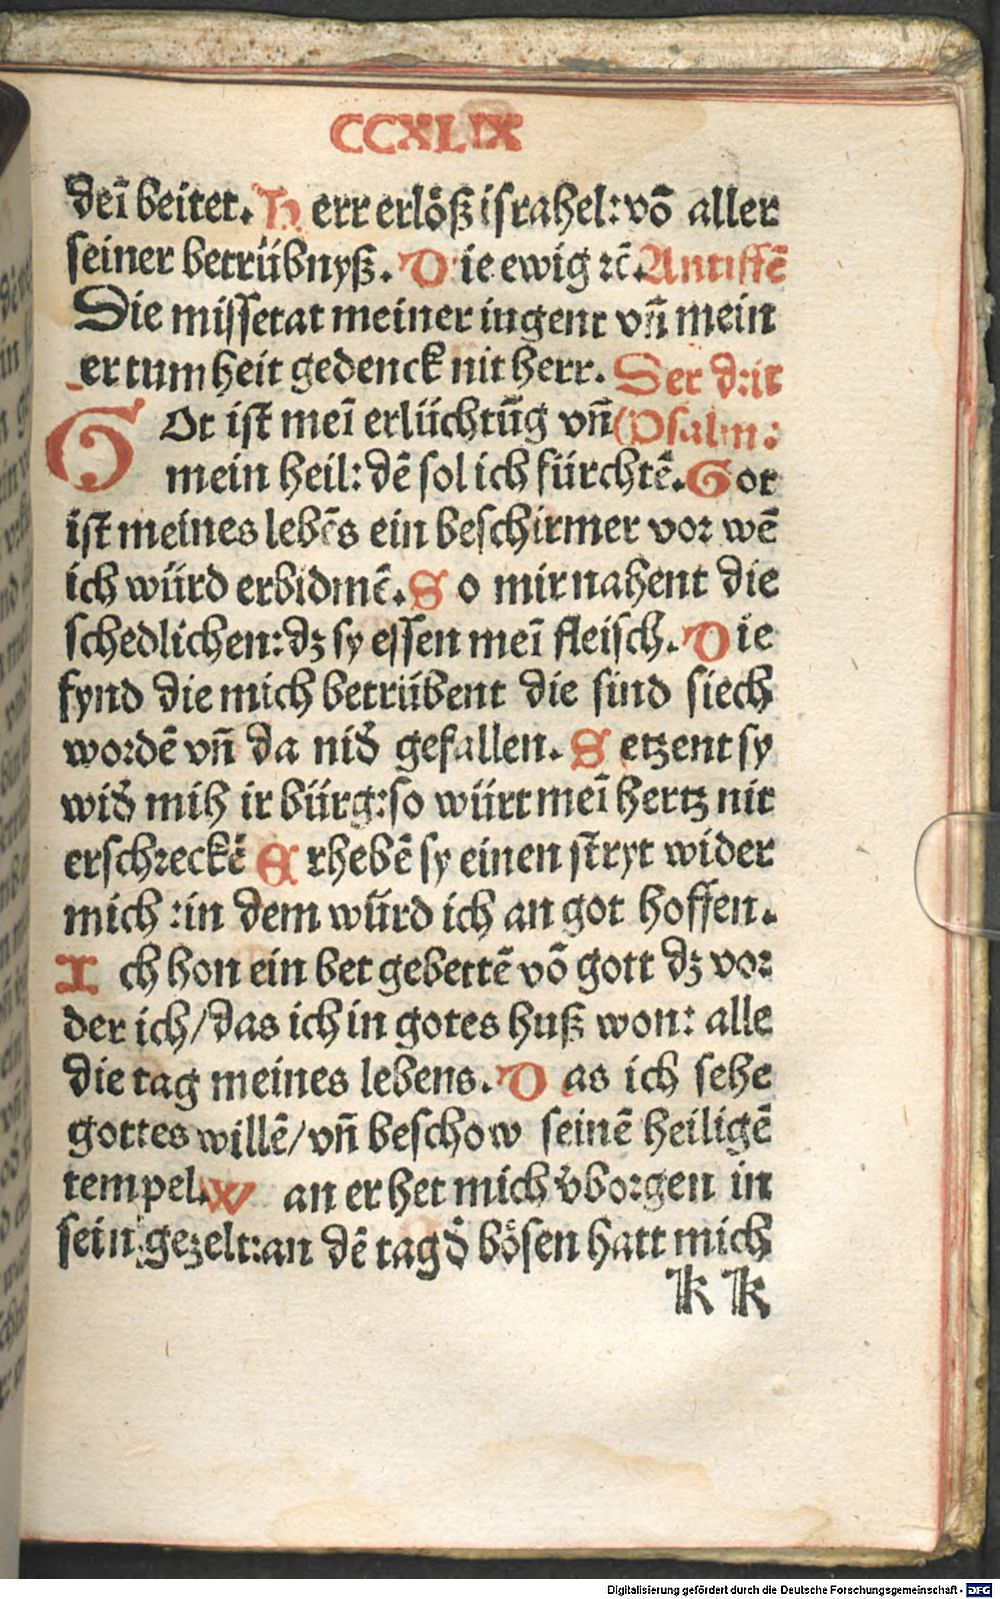 CCXLIX
deī beitet. H err erlöß israhel: vō aller
seiner betrübnyß. D ie ewig ꝛc̄. Antiffē
Die missetat meiner iugent vñ mein
er tumheit gedenck nit herr. Der drit
GOt ist meī erlüchtūg vñ (Psalm:
mein heil: dē sol ich fürchtē. Got
ist meines lebēs ein beschirmer vor wē
ich würd erbidmē. S o mir nahent die
schedlichen: dz sy essen meī fleisch. D ie
fynd die mich betrübent die sind siech
wordē vñ da nid̕ gefallen. S etzent sy
wid̕ mih ir bürg: so würt meī hertz nit
erschreckē E rhebē sy einen stryt wider
mich : in dem würd ich an got hoffen.
I ch hon ein bet gebettē vō gott dz vor
der ich / das ich in gotes huß won: alle
die tag meines lebens. D as ich sehe
gottes willē / vñ beschow seinē heiligē
tempel. W an er het mich v̕borgen in
sein gezelt: an dē tag d̕ bösen hatt mich
kk
Digitalisierung gefördert durch die Deutsche Forschungsgemeinschaft - DFG